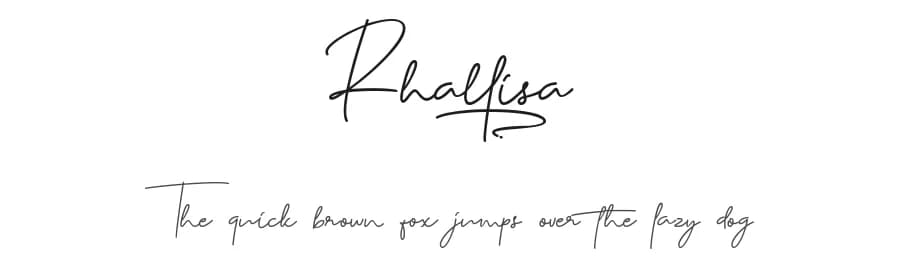 Rhallisa
The quick brown fox jumps over the lazy dog